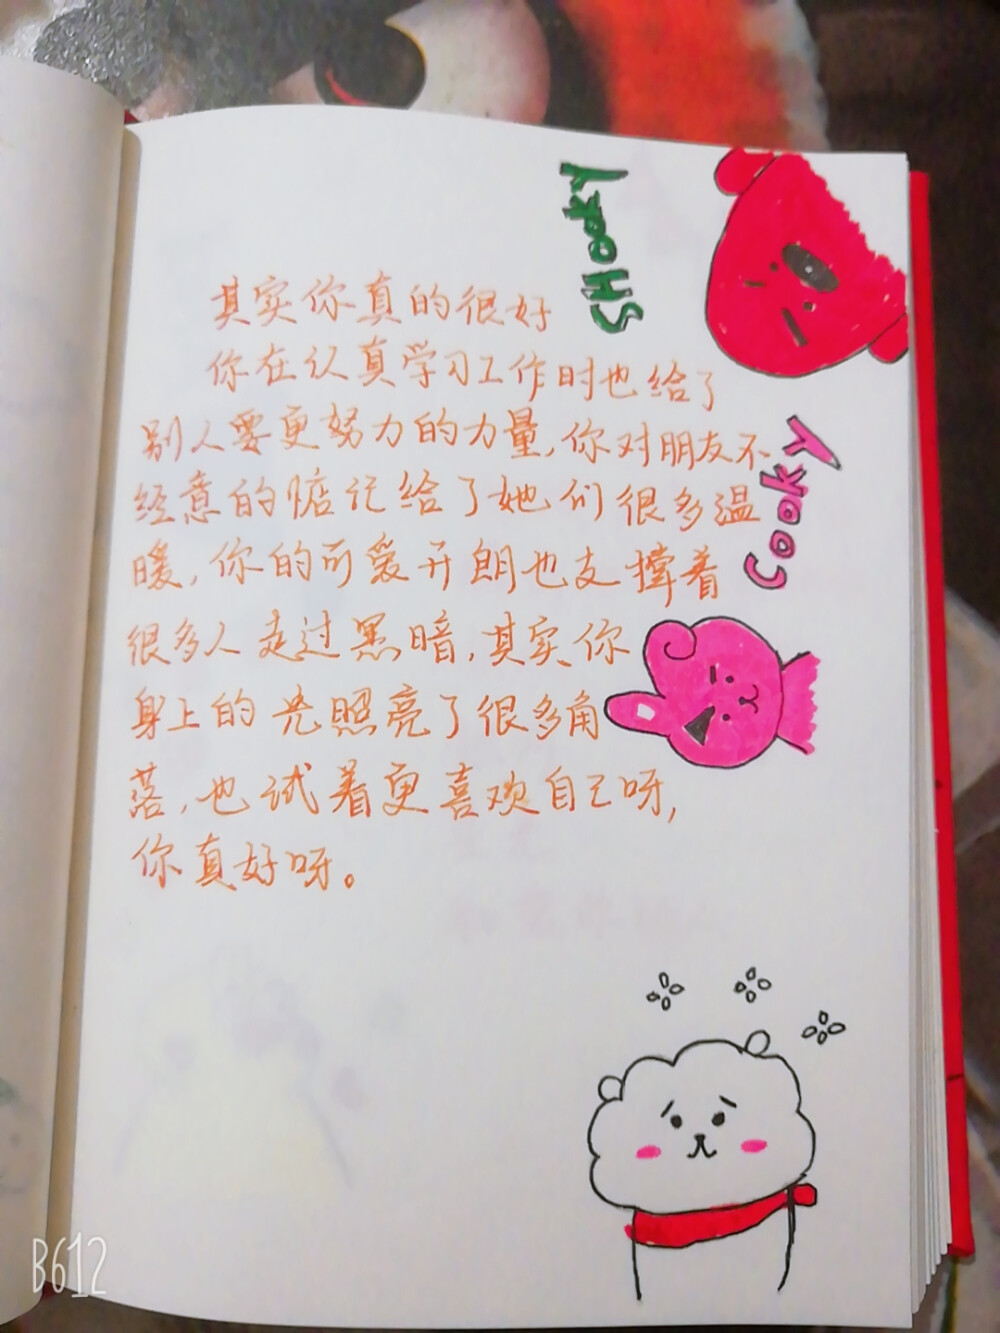 SHoōky
其实你真的很好
你在认真学习工作时也给了
别人要更努力的力量,你对朋友不
经意的惦记给了她们很多温
暖,你的可爱开朗也支撑着
很多人走过黑暗,其实你
身上的光照亮了很多角
落,也试着更喜欢自己呀,
你真好呀。
CookY
B612